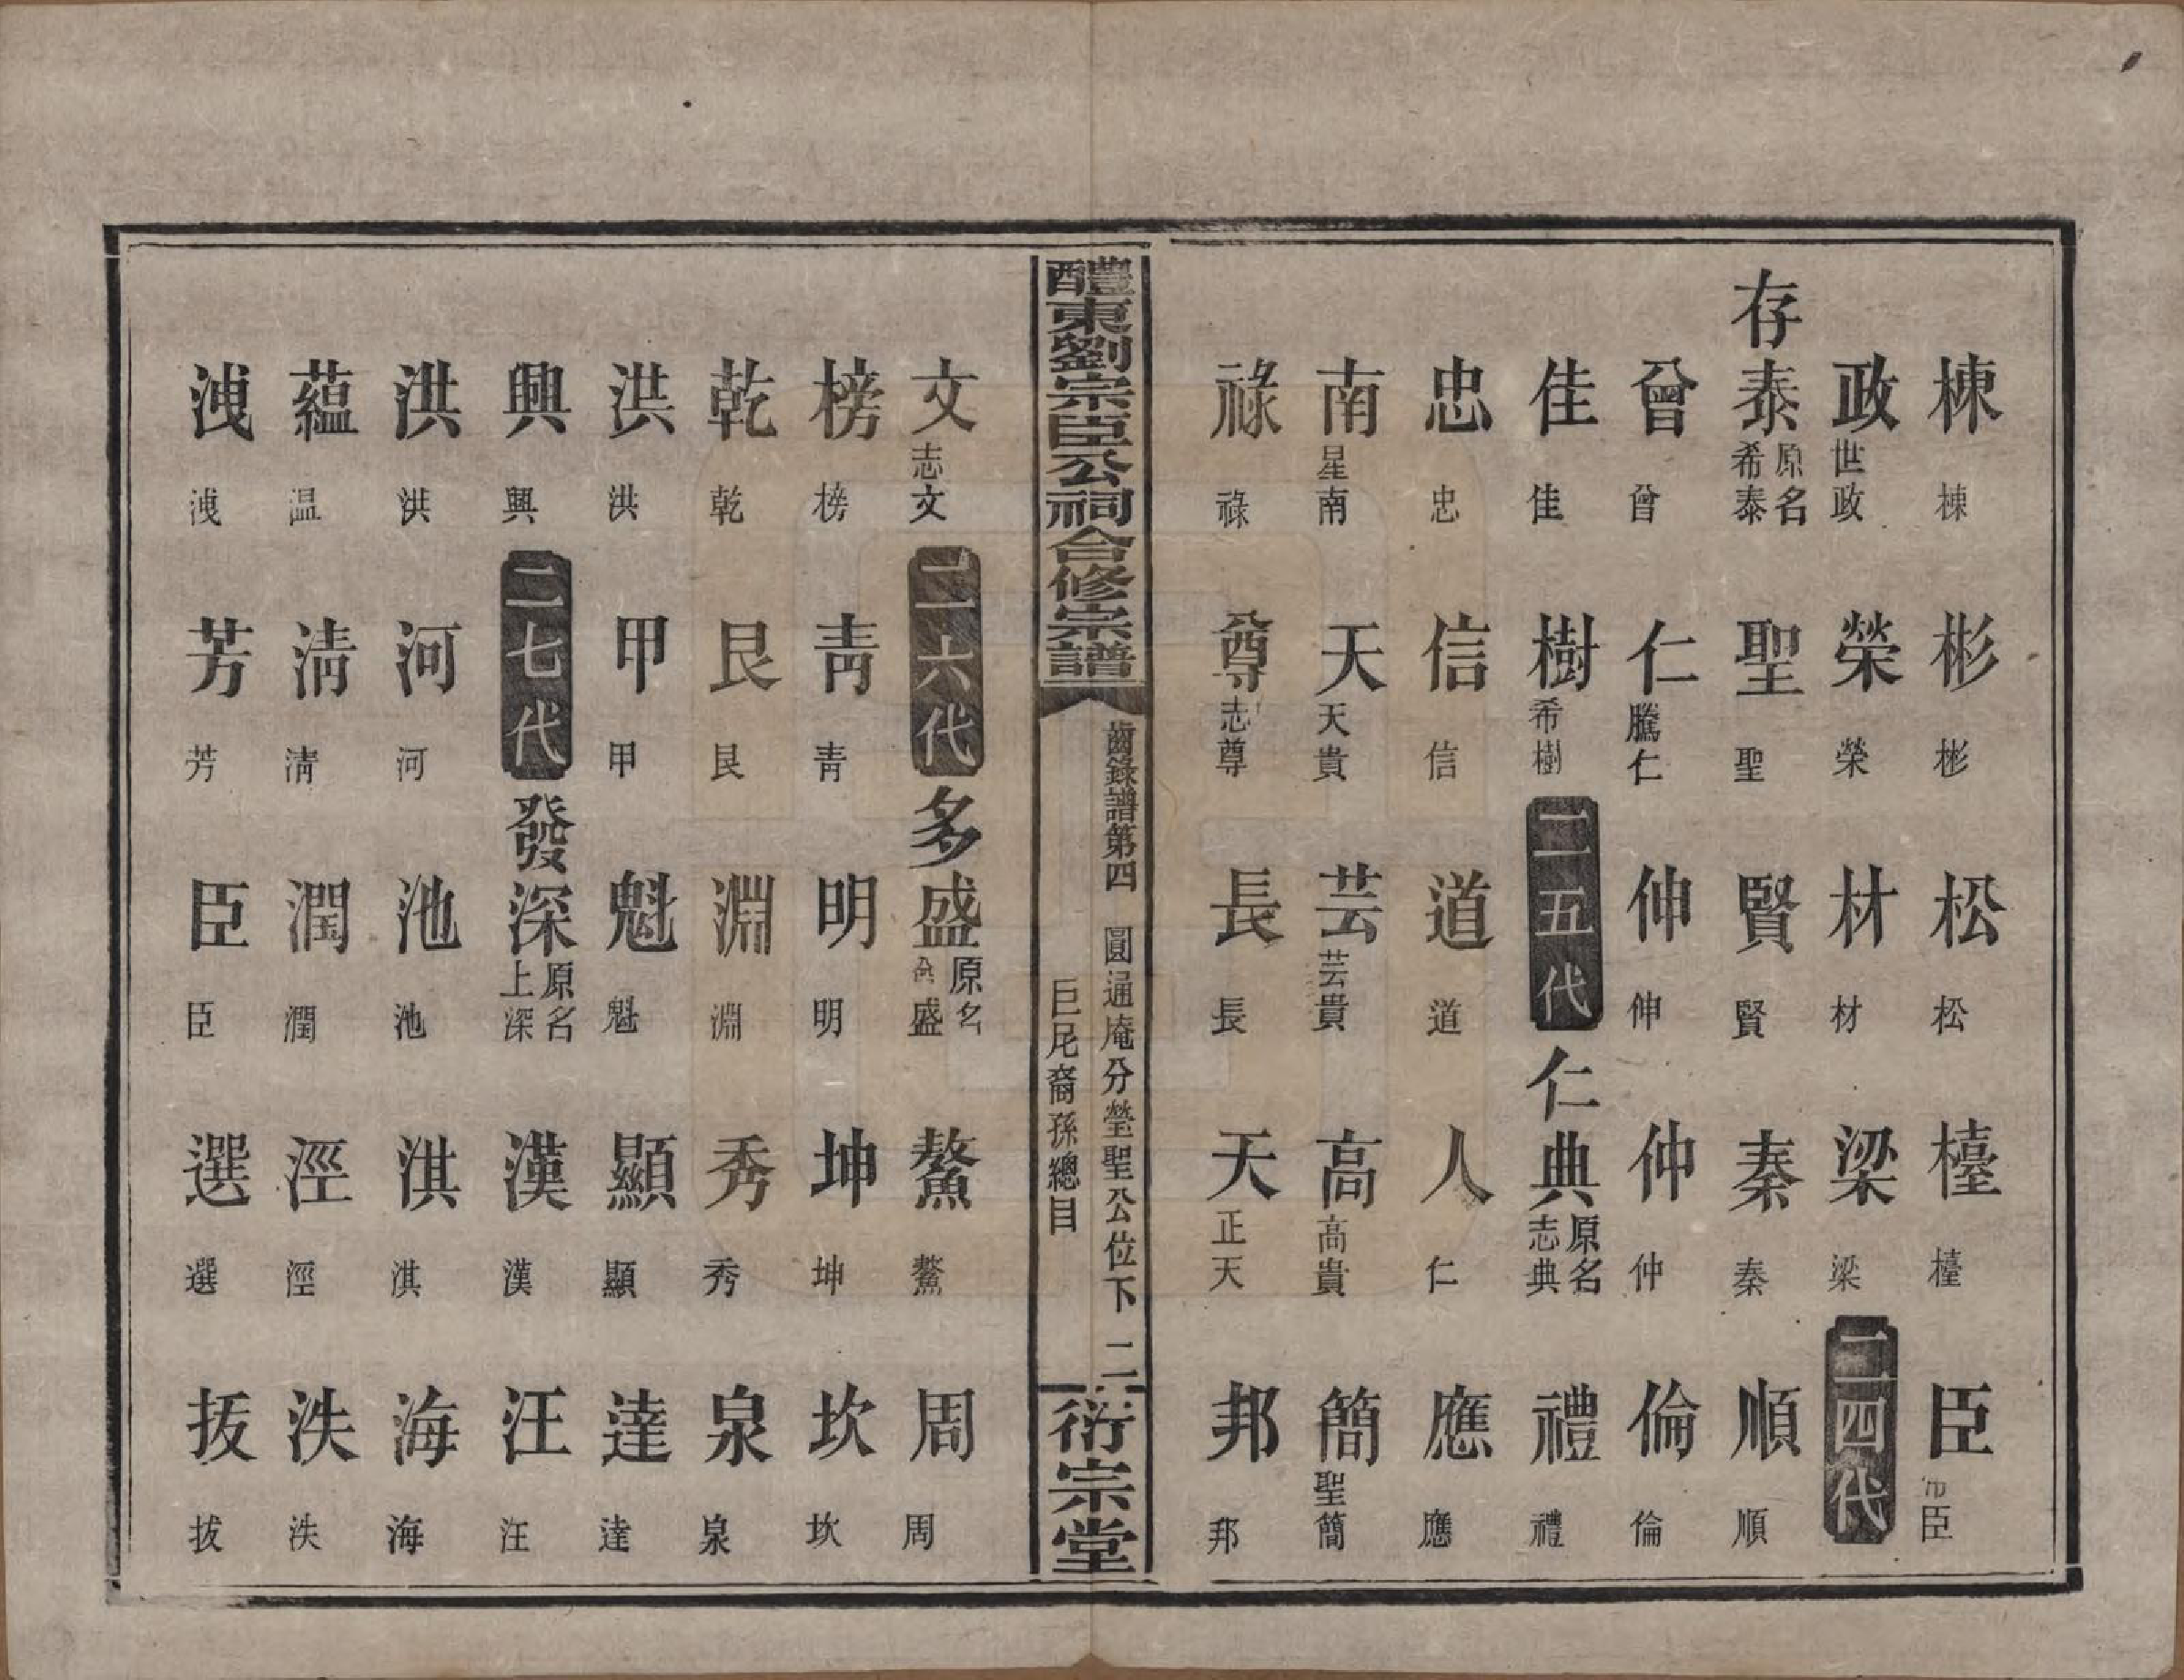 棟棟 彬彬 松松 檯檯 臣臣
政世政 榮榮 材材 梁梁 二四代
存泰原名希泰 聖聖 賢賢 秦秦 順順
曾曾 仁騰仁 伸伸 仲仲 倫倫
佳佳 樹希樹 二五代 仁典原名志典 禮禮
忠忠 信信 道道 人仁 應應
南星南 天天貴 芸芸貴 高高貴 簡聖簡
祿祿 尊志尊 長長 天正天 邦邦
醴東劉宗臣公祠合修宗譜
齒錄譜第四 圓通庵分塋聖公位下 二
巨尾裔孫總目
衍宗堂
文志文 二六代 多盛原名盛 鰲鰲 周周
榜榜 青青 明明 坤坤 坎坎
乾乾 艮艮 淵淵 秀秀 泉泉
洪洪 甲甲 魁魁 顯顯 達達
興興 二七代 發深原名上深 漢漢 汪汪
洪洪 河河 池池 淇淇 海海
蘊温 清清 潤潤 涇涇 泆泆
洩洩 芳芳 臣臣 選選 拔拔